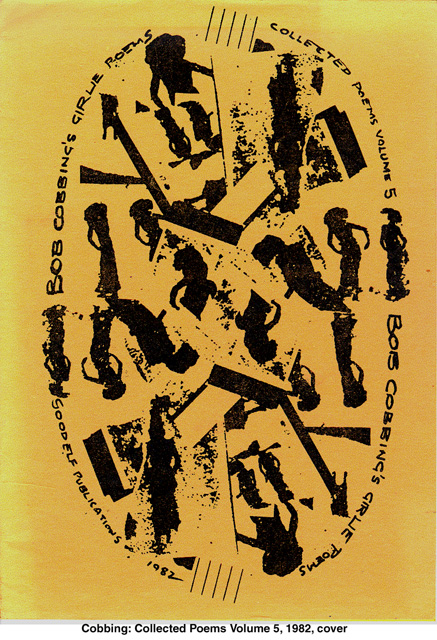 BOB COBBING'S GIRLIE POEMS
COLLECTED POEMS VOLUME 5
BOB COBBING'S GIRLIE POEMS
1982
Cobbing: Collected Poems Volume 5, 1982, cover